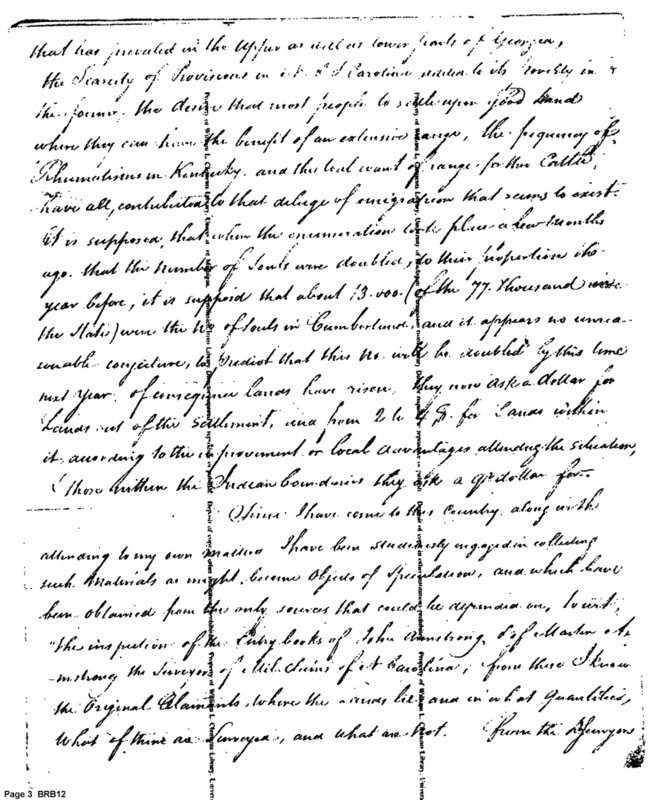 that has prevailed in the upper as well as lower parts of Georgia,
the Scarcity of Provisions in N. & S Carolina added to its novelty in
the former, the desire that most people to settle upon good Land
where they can have the benefit of an extensive range, the frequency of
Rhumatisms in Kentucky and the total want of range for their Cattle,
have all, contributed to that deluge of emigration that seems to exist.
It is supposed, that when the enumeration took place a few months
ago that the number of Souls were doubled, to their proportion the
year before, it is supposed that about 13.000. (of the 77. thousand
the State) were the No of Souls in Cumberland, and it appears no unrea-
sonable conjecture, to predict that this No. will be doubled by this time
next year, of consequence lands have risen. they now ask a dollar for
Lands out of the Settlement, and from 2 to 4 for Lands within
it, according to the improvement or local advantages attending the situation,
(those within the Indian boundaries they ask a qr dollar for
Since I have come to this Country along with
attending to my own matters I have been studiously engaged in collecting
such Materials as might become Objects of Speculation, and which have
been obtained from the only sources that could be depended on, to wit,
"the inspection of the Entry books of John Armstrong, & of Martin Ar-
mstrong the Surveyor of Mil. Claims of N Carolina; from these I know
the Original Claimants, where the Lands lie, and in what Quantities,
What of them are Surveyed, and what are Not. From the Surveyors
Page 3 BRB12